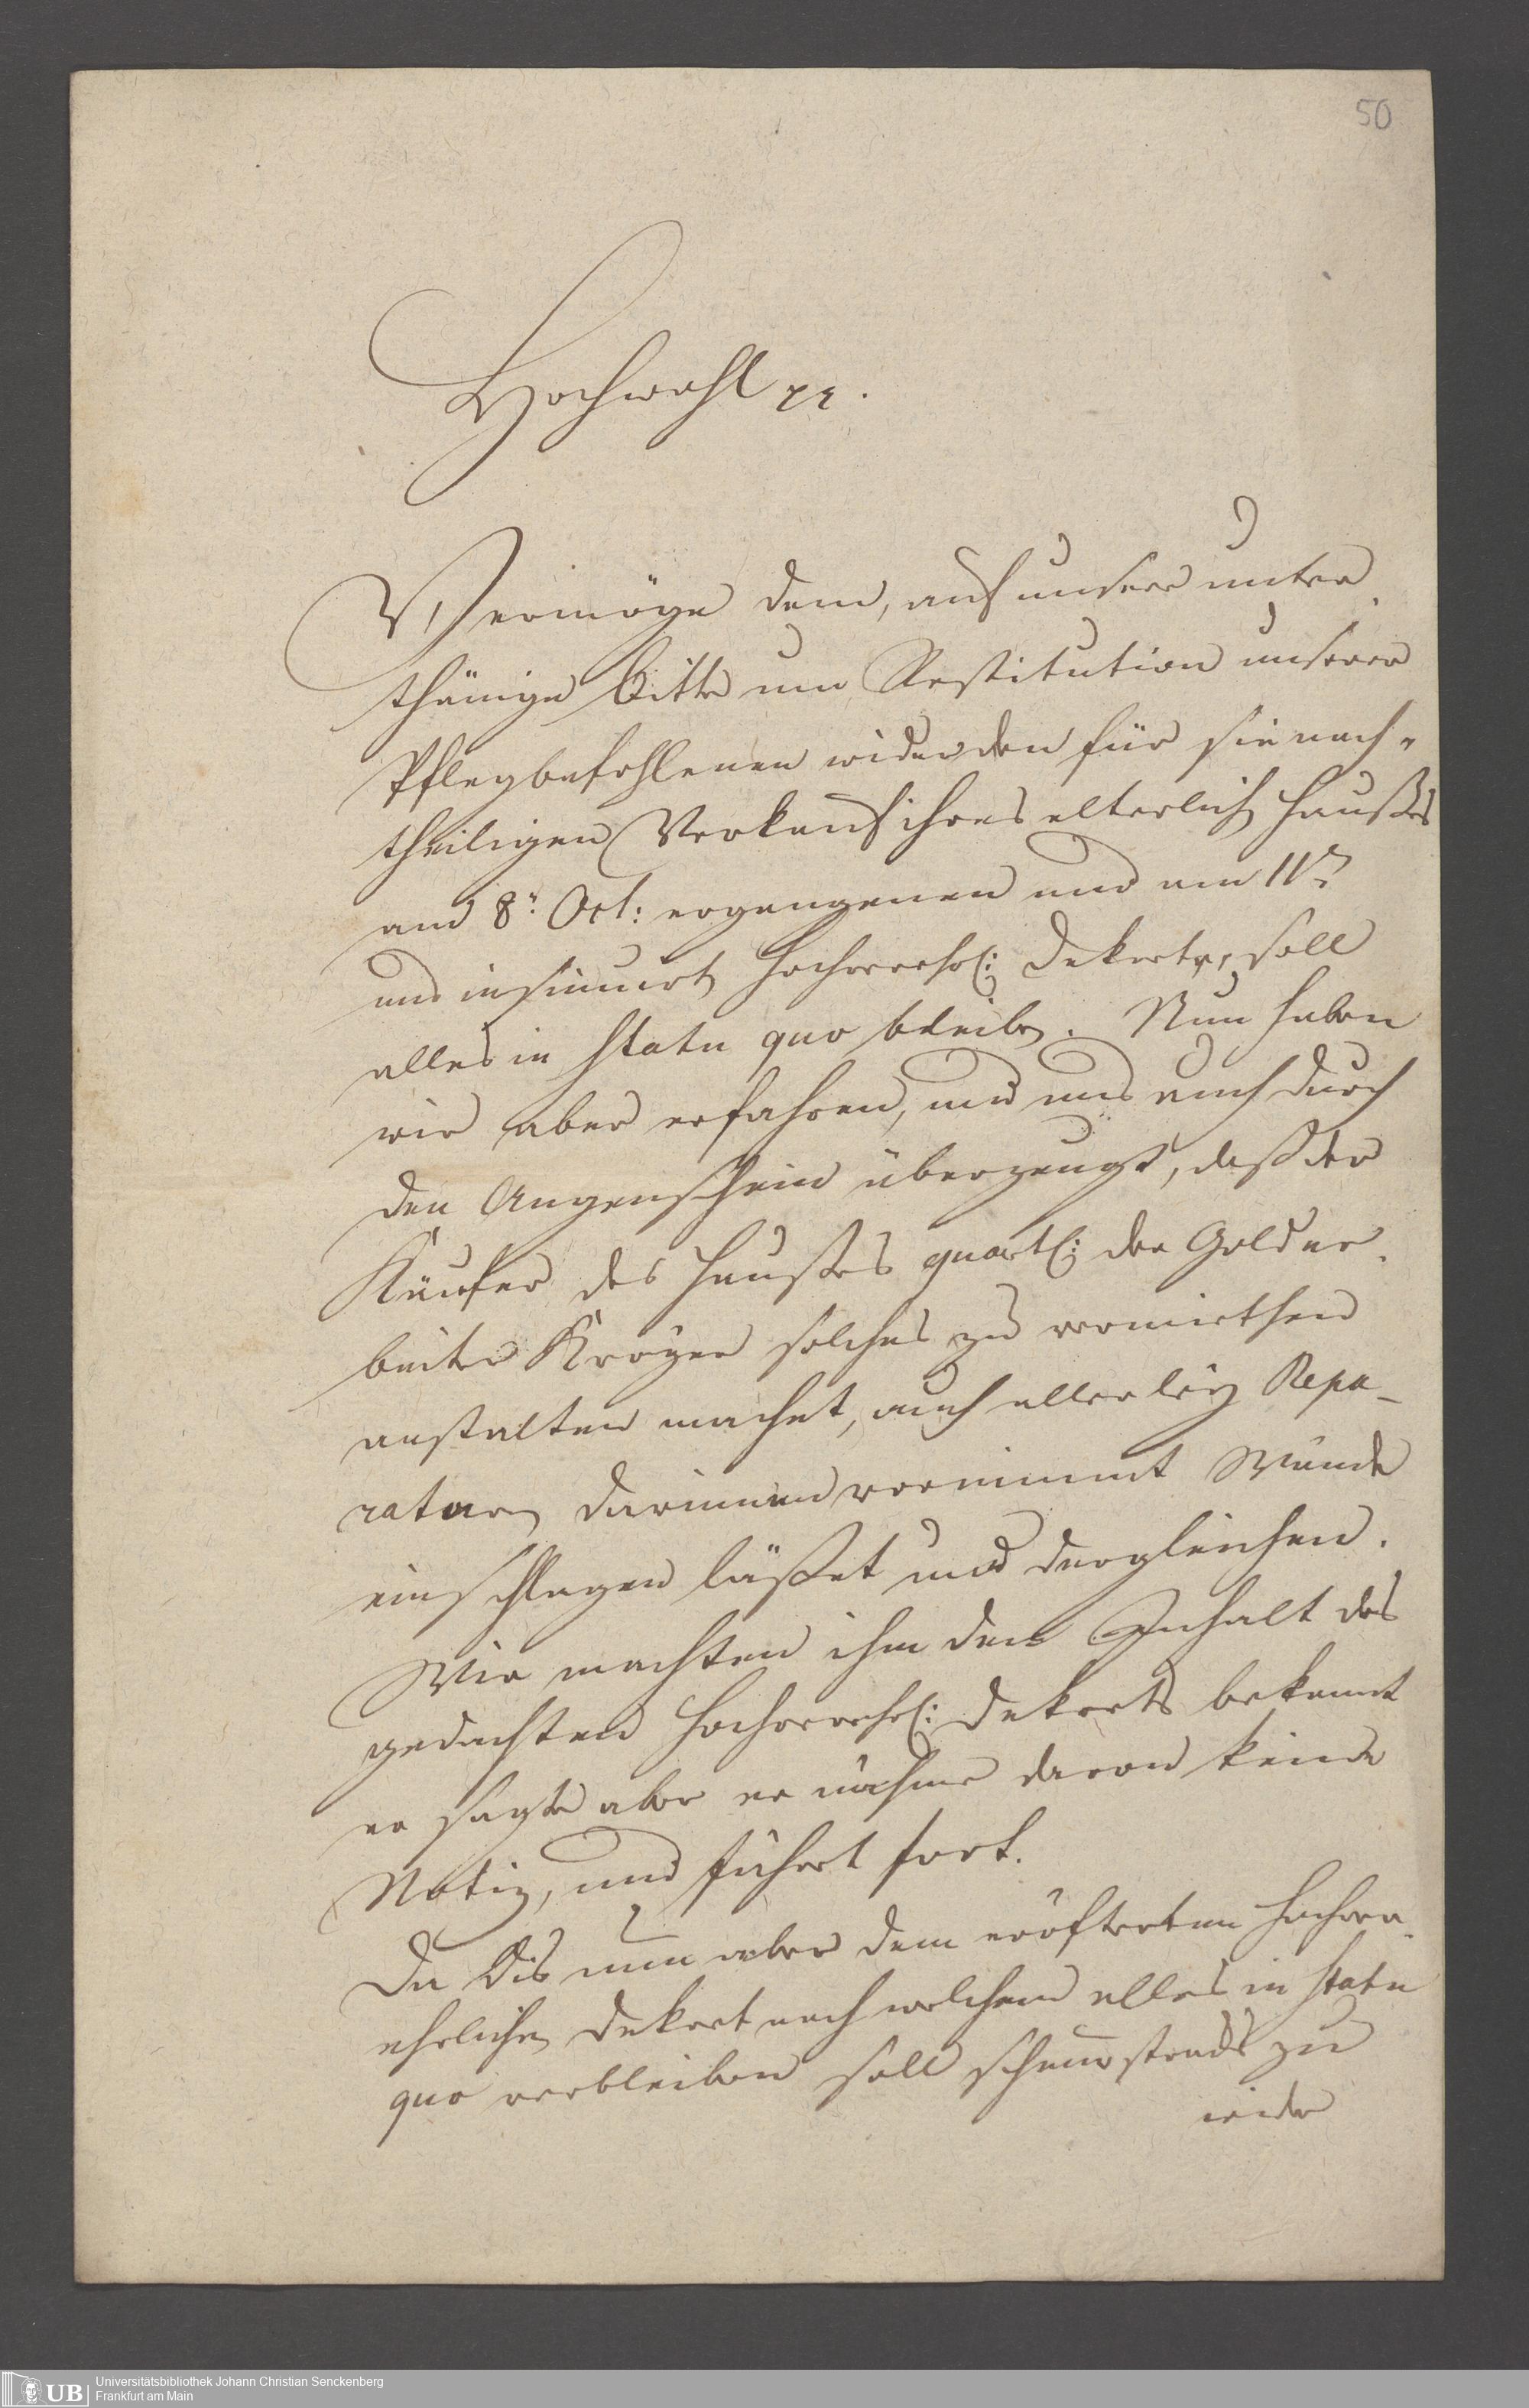 50
Hochwohl pp.
Vermöge dem, auf unsere unter-
thänige Bitte um Restitution unserer
Pflegbefohlenen wider den für sie nach-
theiligen Verkauf ihres elterlich Haußes
am 8n. Oct: ergangenen und am 11n.
uns insinuirt hochverehrl: Dekrete, soll
alles in statu quo bleiben. Nun haben
wir aber erfahren, und uns auch durch
den Augenschein überzeugt, daß der
Käufer des Haußes quaest: der Goldar-
beiter Kröger solches zu vermiethen
anstalten machet, auch allerley Repa-
raturen darinnen vornimmt Wände
einschlagen lässet und dergleichen.
Wir machten ihm den Inhalt des
gedachten hochverehrl: Dekrets bekannt
er sagte aber er nähme davon keine
Notiz, und führt fort.
Da dis nun aber dem eröfterten hochver-
ehrlichen Dekret nach welchem alles in statu
quo verbleiben soll schnurstracks zu
wider
UB
Universitätsbibliothek Johann Christian Senckenberg
Frankfurt am Main